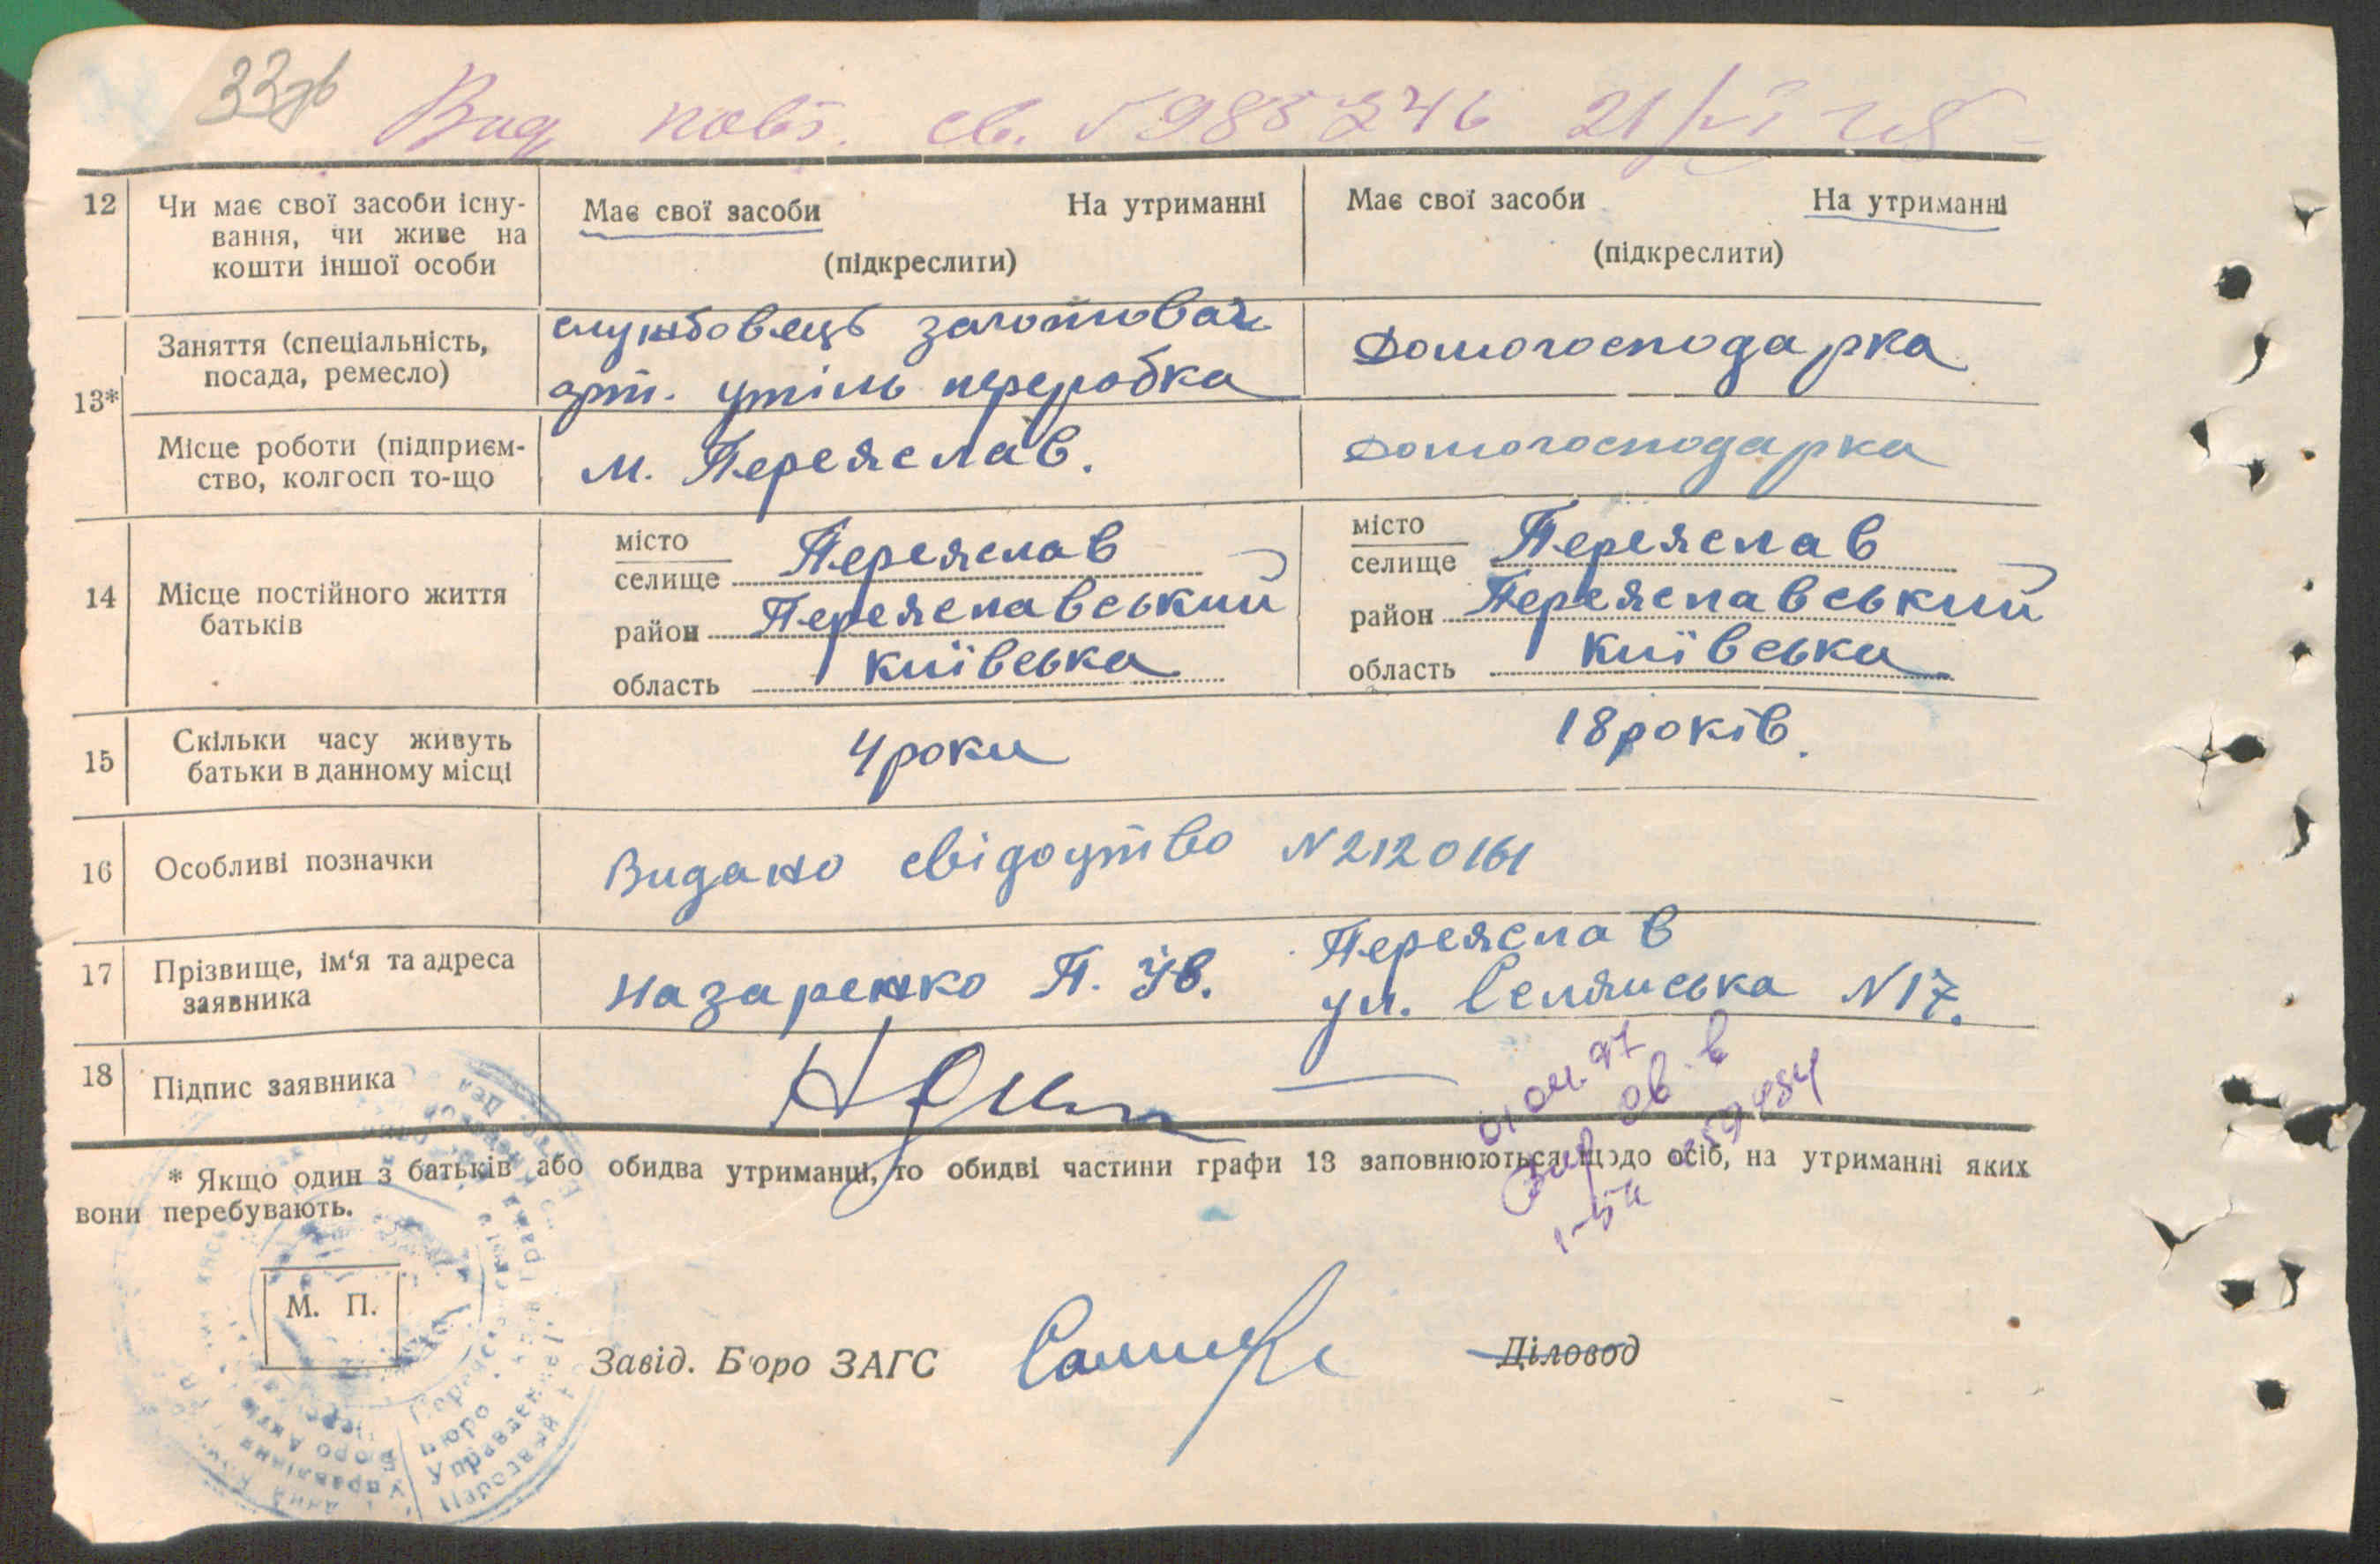 33зв
Вид повт. св. 985246 21/VI
12 Чи має свої засоби існу-
вання, чи живе на
кошти іншої особи
Має свої засоби На утриманні
(підкреслити)
Має свої засоби На утриманні
(підкреслити)
13*
Заняття (спеціальність,
посада, ремесло)
службовець заготовач
арт. утіль переробка
Домогосподарка
Місце роботи (підприєм-
ство, колгосп то-що
м. Переяслав.
Домогосподарка
14 Місце постійного життя
батьків
місто
селище Переяслав
район Переяславський
область Київська
місто
селище Переяслав
район Переяславський
область Київська
15 Скільки часу живуть
батьки в данному місці
4 роки
18 років.
16 Особливі позначки
Видано свідоцтво N 2120161
17 Прізвище, ім'я та адреса
заявника
Назаренко П. Ів. Переяслав
ул. Селянська N 17.
18 Підпис заявника
* Якщо один з батьків або обидва утриманці, то обидві частини графи 13 заповнюються щодо осіб, на утриманні яких
вони перебувають.
М. П.
Завід. Бюро ЗАГС
Діловод